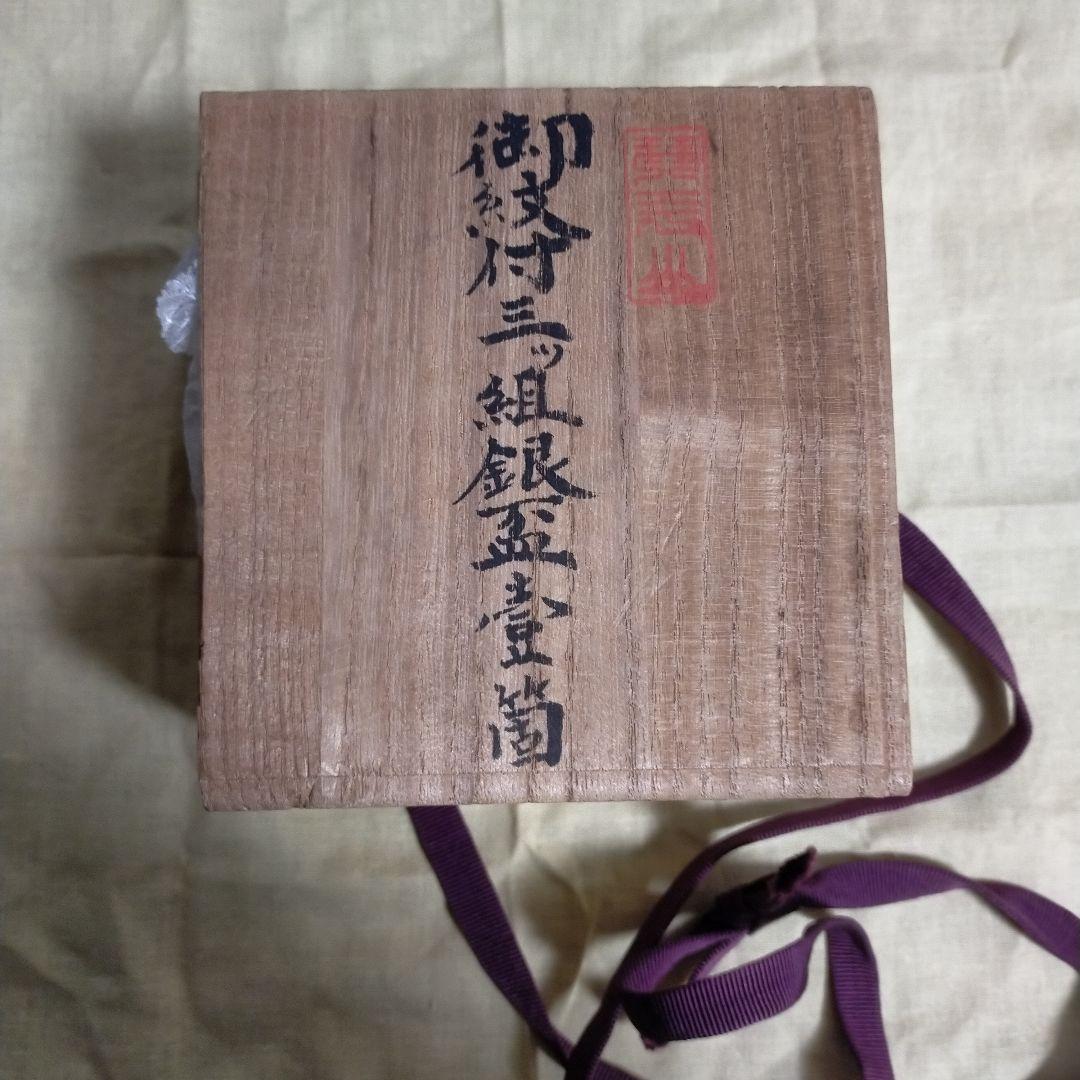 御紋付三ッ組銀盃壹箇